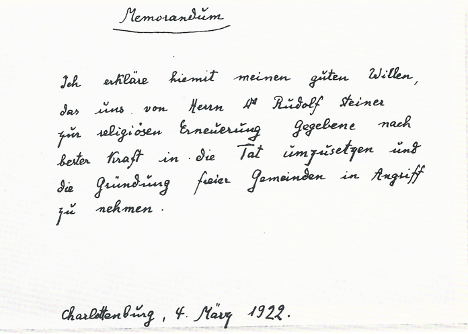 Memorandum
Ich erkläre hiemit meinen guten Willen,
das uns von Herrn Dr Rudolf Steiner
zur religiösen Erneuerung Gegebene nach
bester Kraft in die Tat umzusetzen und
die Gründung freier Gemeinden in Angriff
zu nehmen.
Charlottenburg, 4. März 1922.